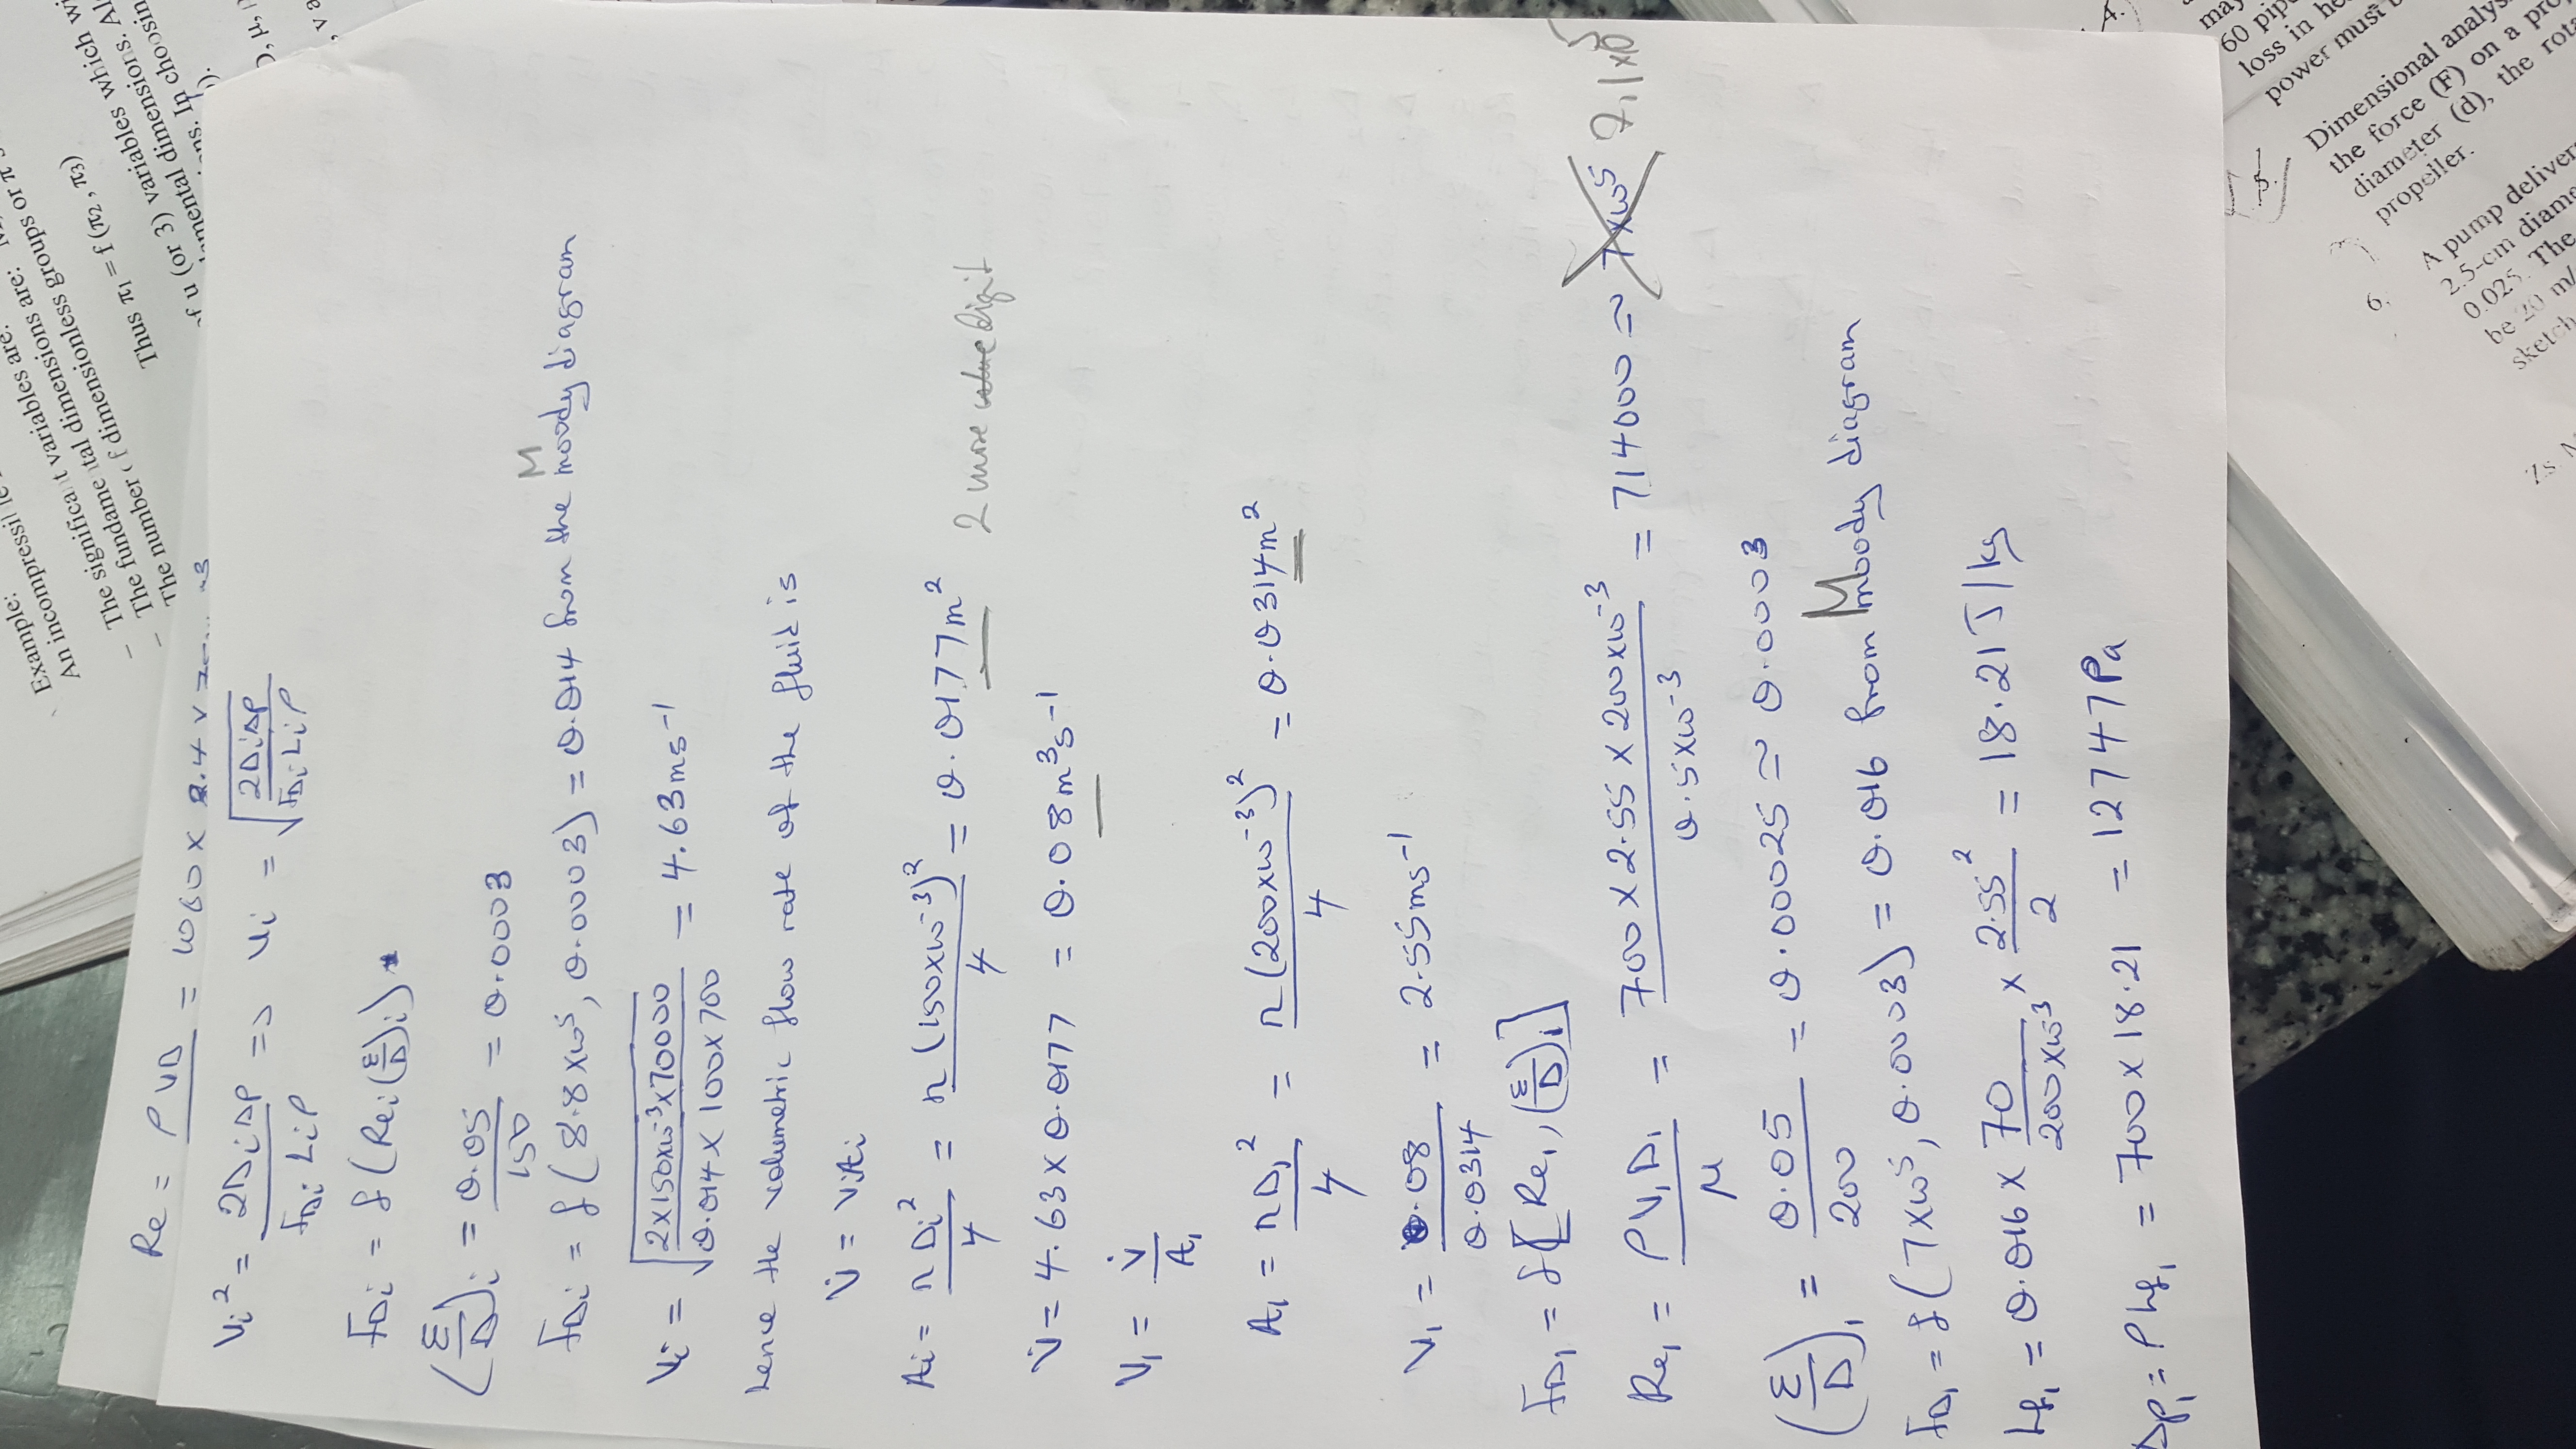 Example:
An incompressi
The significant variables are:
The fundamental dimensions are:
The number of dimensionless groups or π
Thus π₁ = f (π₂ , π₃)
of u (or 3) variables which
dimensions.
In choosing
Re = ρVD = 1060 ×
Vi² = 2DiΔP / FDi Li ρ => Vi = √(2DiΔP / FDi Li ρ)
FDi = f(Rei (ε/D)i)
(ε/D)i = 0.05/150 = 0.0003
FDi = f(8.8×10⁵, 0.0003) = 0.014 from the Moody diagram
Vi = √(2×150×10⁻³×70000 / 0.014 × 100 × 700) = 4.63 ms⁻¹
hence the volumetric flow rate of the fluid is
V̇ = ViAi
Ai = πDi²/4 = π(150×10⁻³)²/4 = 0.0177 m²
2 more value digit
V̇ = 4.63 × 0.0177 = 0.08 m³s⁻¹
V₁ = V̇/A₁
A₁ = πD₁²/4 = π(200×10⁻³)²/4 = 0.0314 m²
V₁ = 0.08/0.0314 = 2.55 ms⁻¹
FD₁ = f[Re₁, (ε/D)₁]
Re₁ = ρV₁D₁/μ = 700 × 2.55 × 200×10⁻³ / 0.5×10⁻³ = 714000 ≈ 7×10⁵ 7.1×10⁵
(ε/D)₁ = 0.05/200 = 0.00025 ≈ 0.0003
FD₁ = f(7×10⁵, 0.0003) = 0.016 from Moody diagram
hf₁ = 0.016 × 70/200×10⁻³ × 2.55²/2 = 18.21 J/kg
ΔP₁ = ρhf₁ = 700 × 18.21 = 12747 Pa
60
loss in
power must
5.
Dimensional
the force (F) on a
diameter (d), the
propeller.
6.
A pump
2.5-cm
0.025. The
be 20 m/
sketch